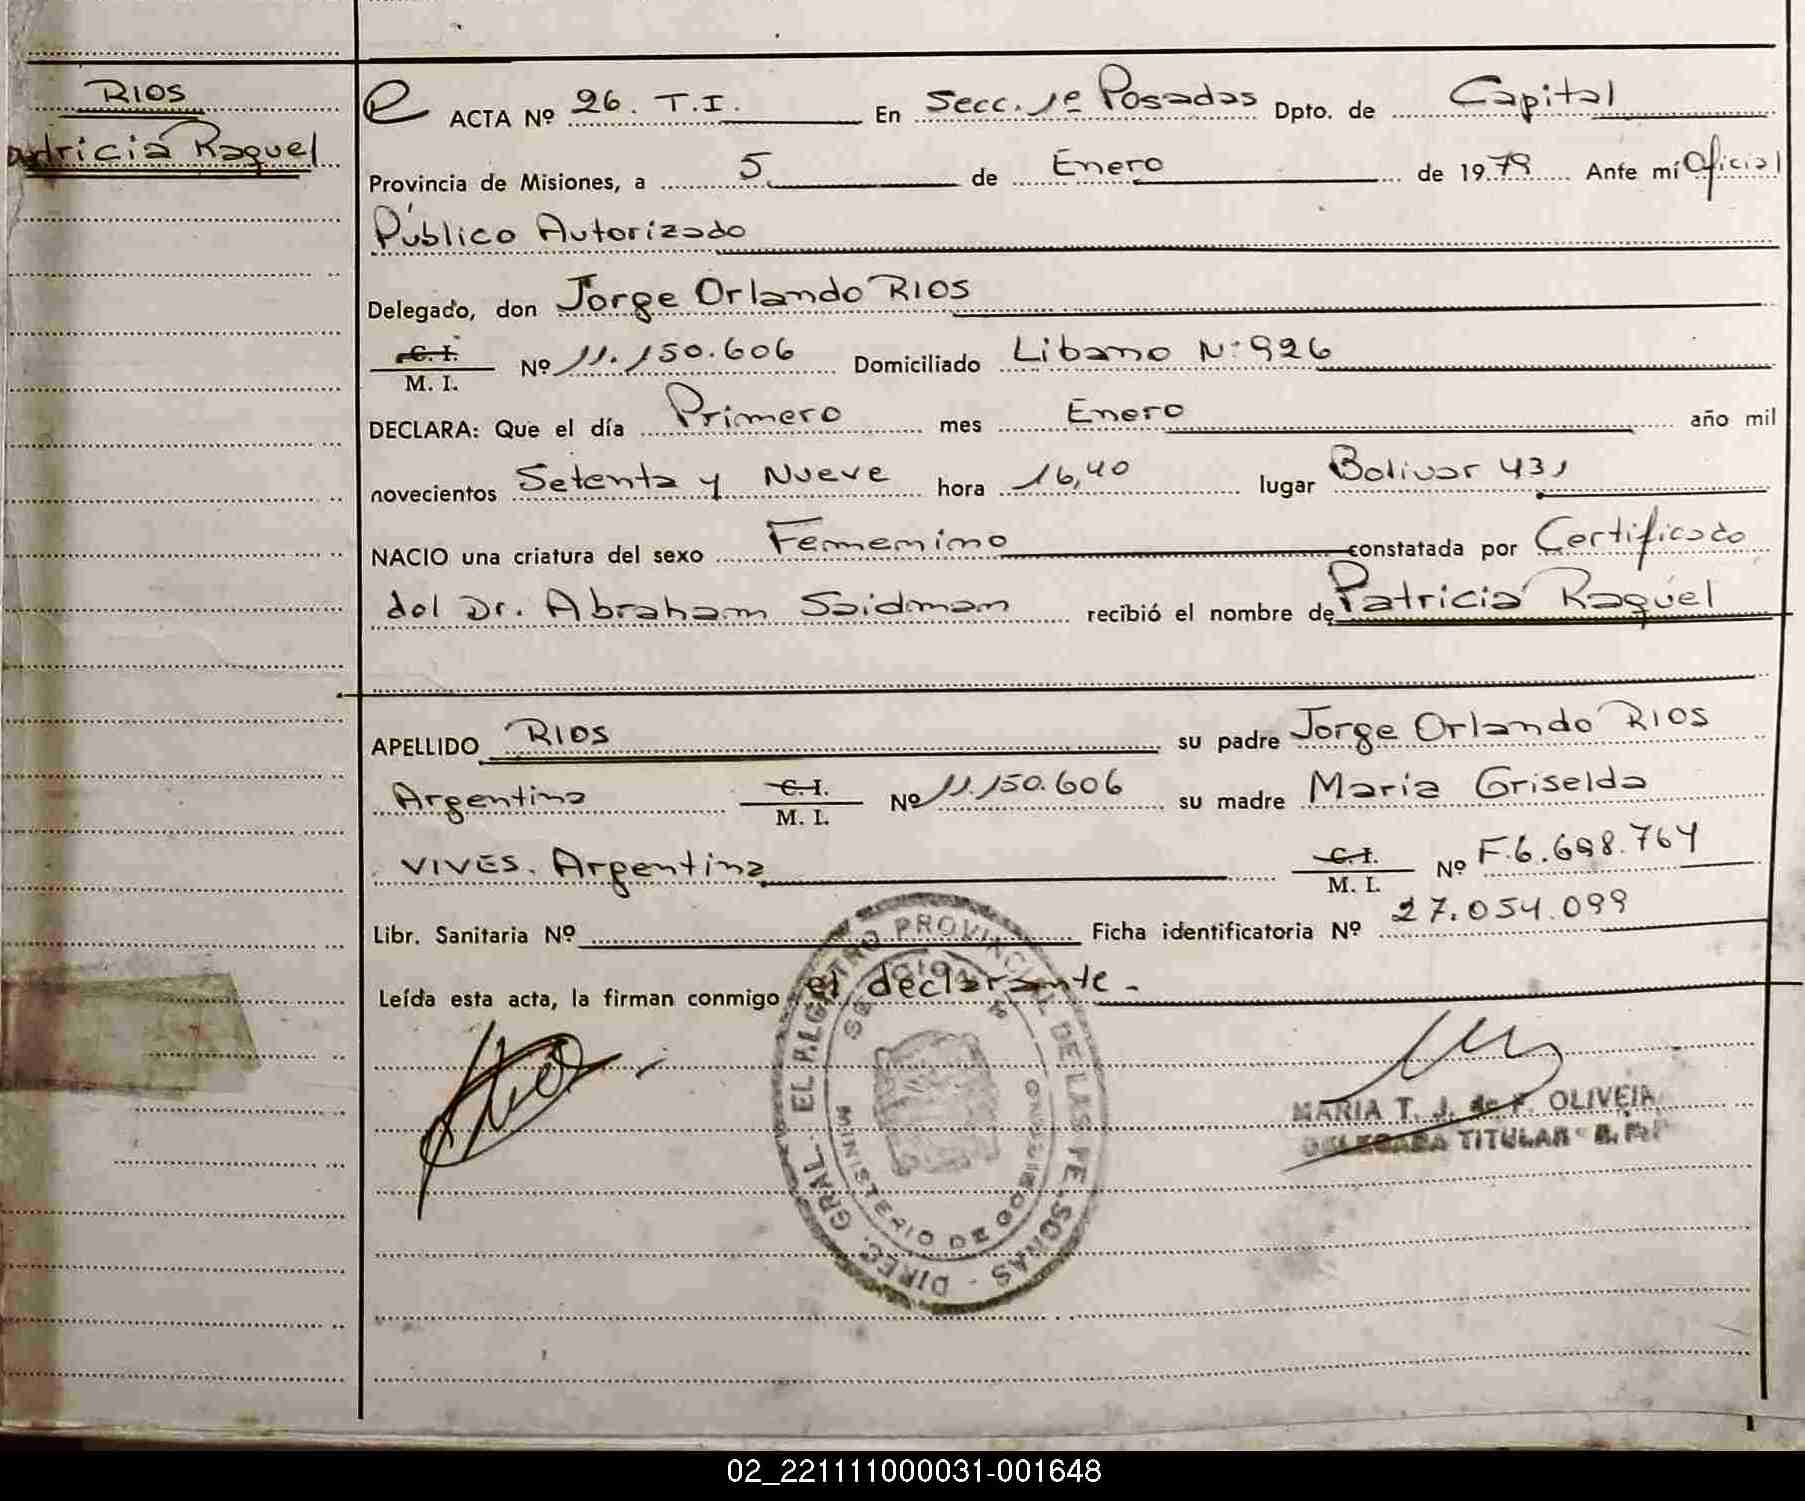 RIOS
Patricia Raquel
ACTA Nº 26. T.I. En Secc. 1º Posadas Dpto. de Capital
Provincia de Misiones, a 5 de Enero de 1979 Ante mí Oficial
Público Autorizado
Delegado, don Jorge Orlando RIOS
C. I.
M. I. Nº 11.150.606 Domiciliado Libano Nº 926
DECLARA: Que el día Primero mes Enero año mil
novecientos Setenta y Nueve hora 16,40 lugar Bolivar 431
NACIO una criatura del sexo Femenino constatada por Certificado
del Dr. Abraham Saidman recibió el nombre de Patricia Raquel
APELLIDO RIOS su padre Jorge Orlando RIOS
Argentino C. I.
M. I. Nº 11.150.606 su madre María Griselda
VIVES. Argentina C. I.
M. I. Nº F.6.698.764
Libr. Sanitaria Nº Ficha identificatoria Nº 27.054.099
Leída esta acta, la firman conmigo el declarante.-
DIREC. GRAL. EL REGISTRO PROVINCIAL DE LAS PERSONAS
MINISTERIO DE GOBIERNO
MARIA T. J. de F. OLIVEIRA
DELEGADA TITULAR R. P. P.
02_221111000031-001648